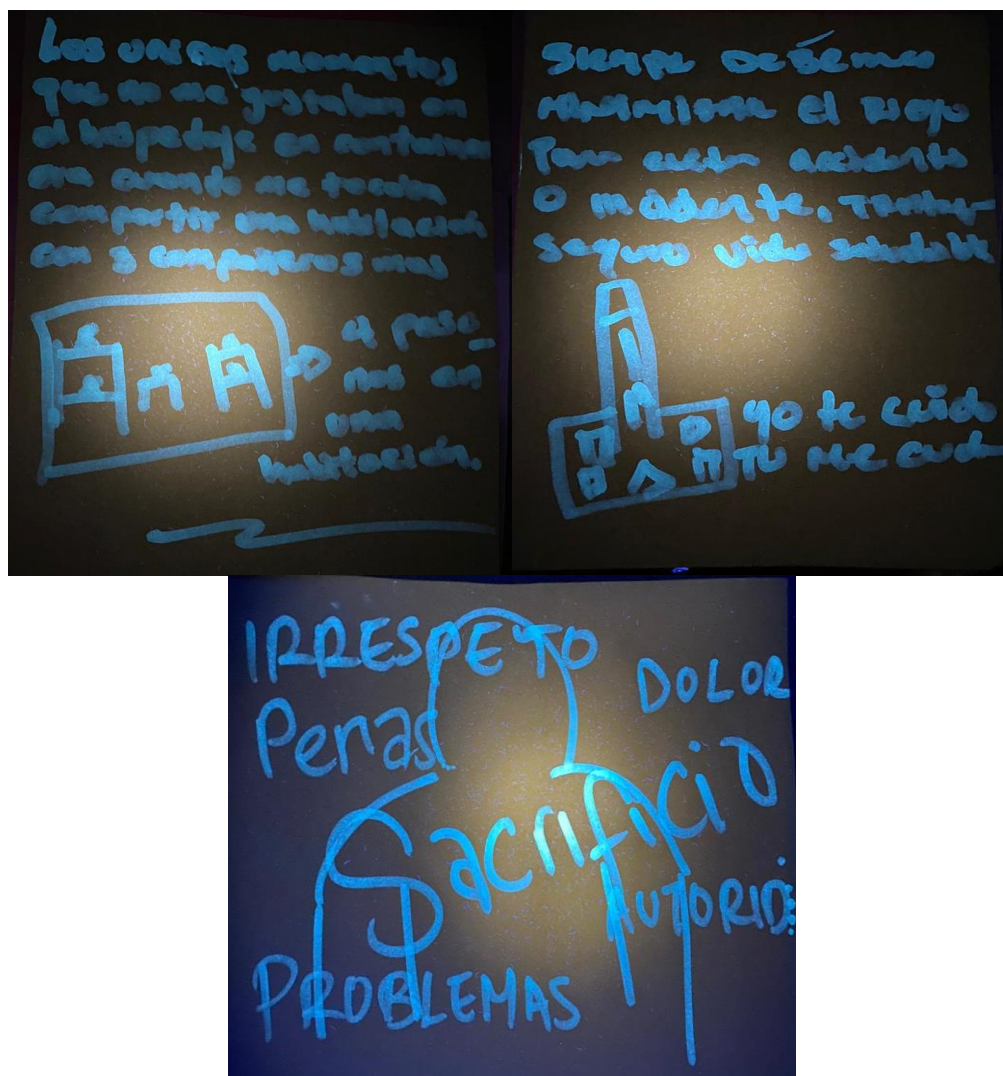 Los unicos momentos
que no me gustaban en
el hospedaje en
era cuando me tocaba
compartir una habitacion
con 3 compañeros mas
4 perso
nas en
una
habitación.
Siempre debemos
el
Para accidente
O
seguro vida saludable
yo te cuido
TU me cuida
IRRESPETO
DOLOR
Penas
Sacrificio
AUTORID
PROBLEMAS